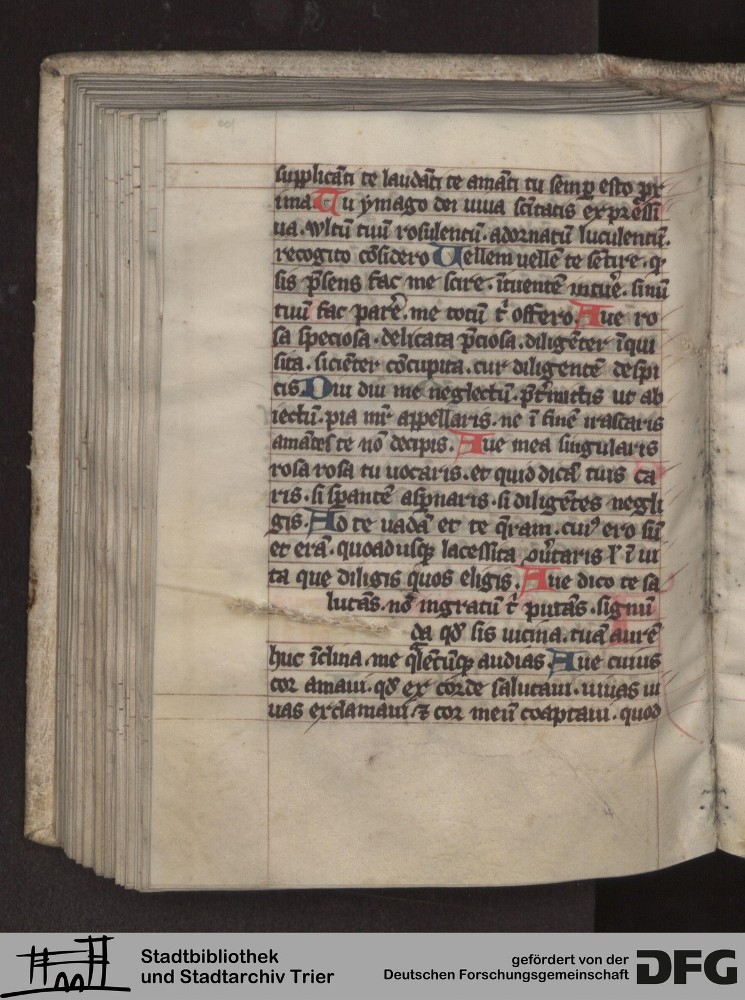 supplicāti te laudāti te amāti tu semꝑ esto pr
ima Tu ymago dei uiua scītatis expressi
ua. vltū tuū rosulentū. adornatū luculentū.
recogito cōsidero Uellem uelle te sētire. q
sis p̄sens fac me scire. ītuentē intuē. sinū
tuū fac parē. me totū t̄ offero. Aue ro
sa speciosa. delicata p̄ciosa. diligēter īqui
sita. siciēter cōcupita. cur diligentē despi
cis. Diu diu me neglectū. p̄tmittis ut ab
iectū. pia mr̄ appellaris. ne ī finē irascaris
amātes te nō decipis. Aue mea singularis
rosa rosa tu uocaris. et quid dicā tuis ca
ris. si spantē aspnaris. si diligētes negli
gis. Ad te uadā et te q̄ram. cui⁹ ero sū
et erā. quoadusqꝫ lacessita ī ui
ta que diligis quos eligis. Aue dico te sa
lutās. nō ingratū t̄ putās. signū
da qđ sis uicina. tuā aurē
huc īclina. me audias Aue cuius
cor amaui. qđ ex corde salutaui. uiuas ui
uas exclamaui. ⁊ cor meū coaptaui. quod
Stadtbibliothek
und Stadtarchiv Trier
gefördert von der
Deutschen Forschungsgemeinschaft
DFG